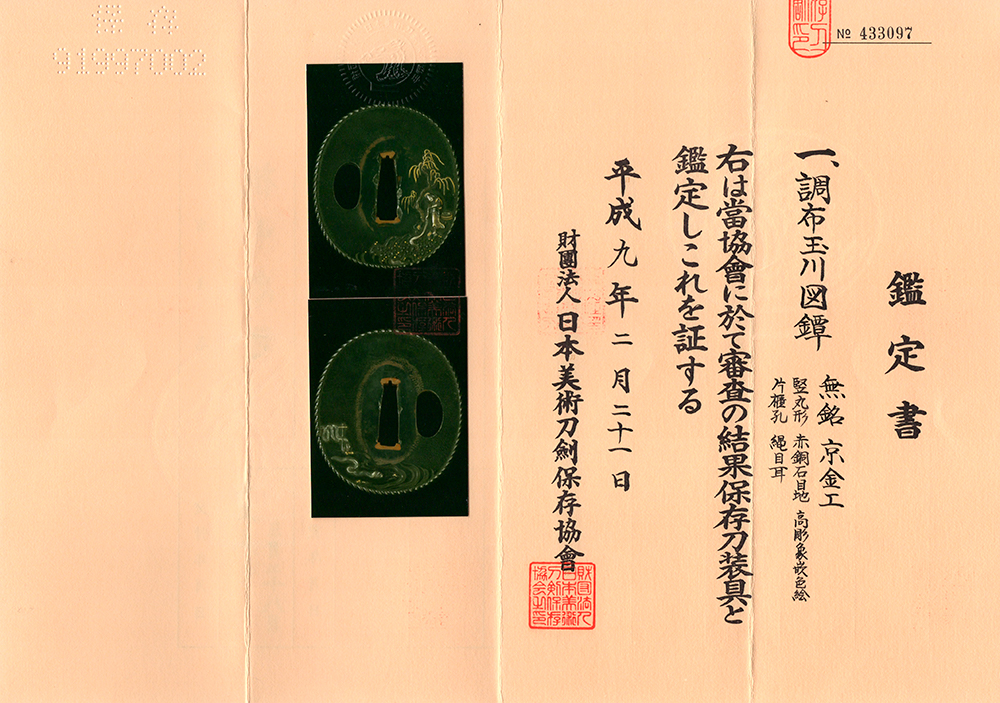 № 433097
鑑定書
一、調布玉川図鐔
無銘 京金工
竪丸形 赤銅石目地 高彫象嵌色絵
片櫃孔 縄目耳
右は當協會に於て審査の結果保存刀装具と
鑑定しこれを証する
平成九年二月二十一日
財團法人 日本美術刀劍保存協會
財団法人
日本美術
刀剣保存
協会之印
保存
91997002